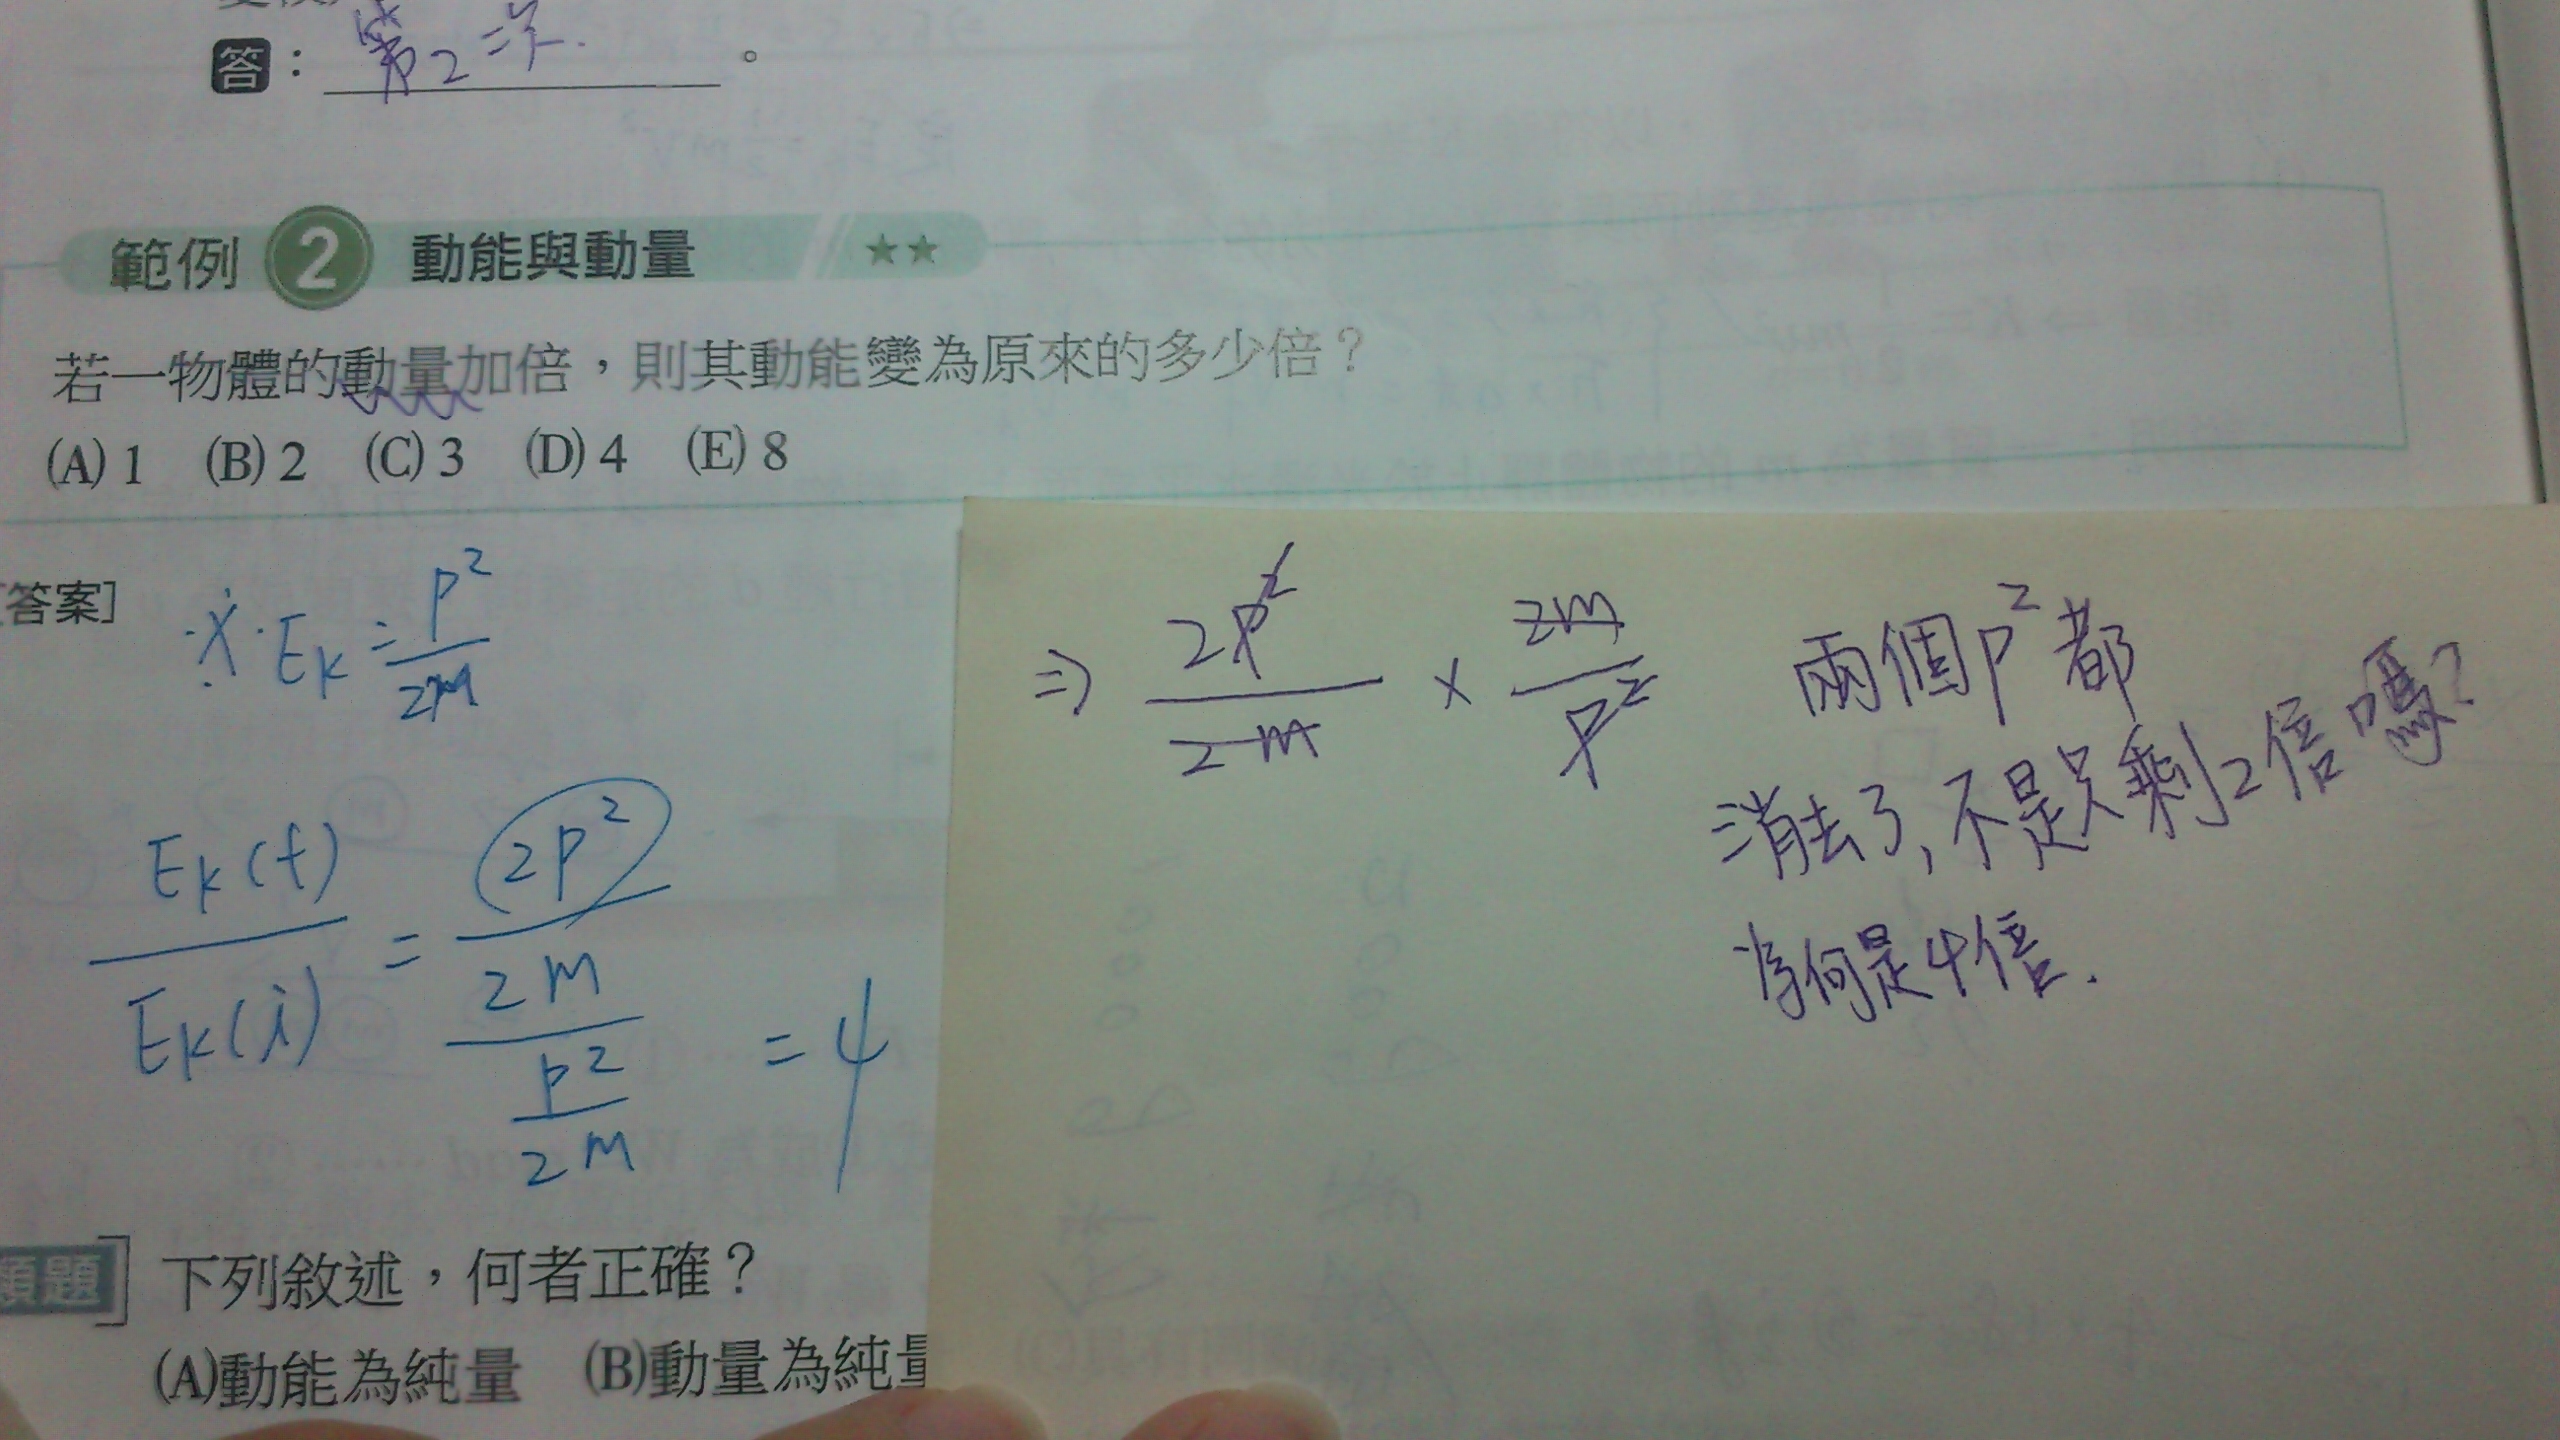 答：第2次。
範例 2 動能與動量 ★★
若一物體的動量加倍，則其動能變為原來的多少倍？
(A) 1 (B) 2 (C) 3 (D) 4 (E) 8
[答案]
※ Ek = P²/2m
Ek(f)/Ek(i) = (2P²/2m)/(P²/2m) = 4
⇒ 2P²/2m × 2m/P²
兩個P²都
消去了，不是只剩2倍嗎？
為何是4倍.
類題] 下列敘述，何者正確？
(A)動能為純量 (B)動量為純量